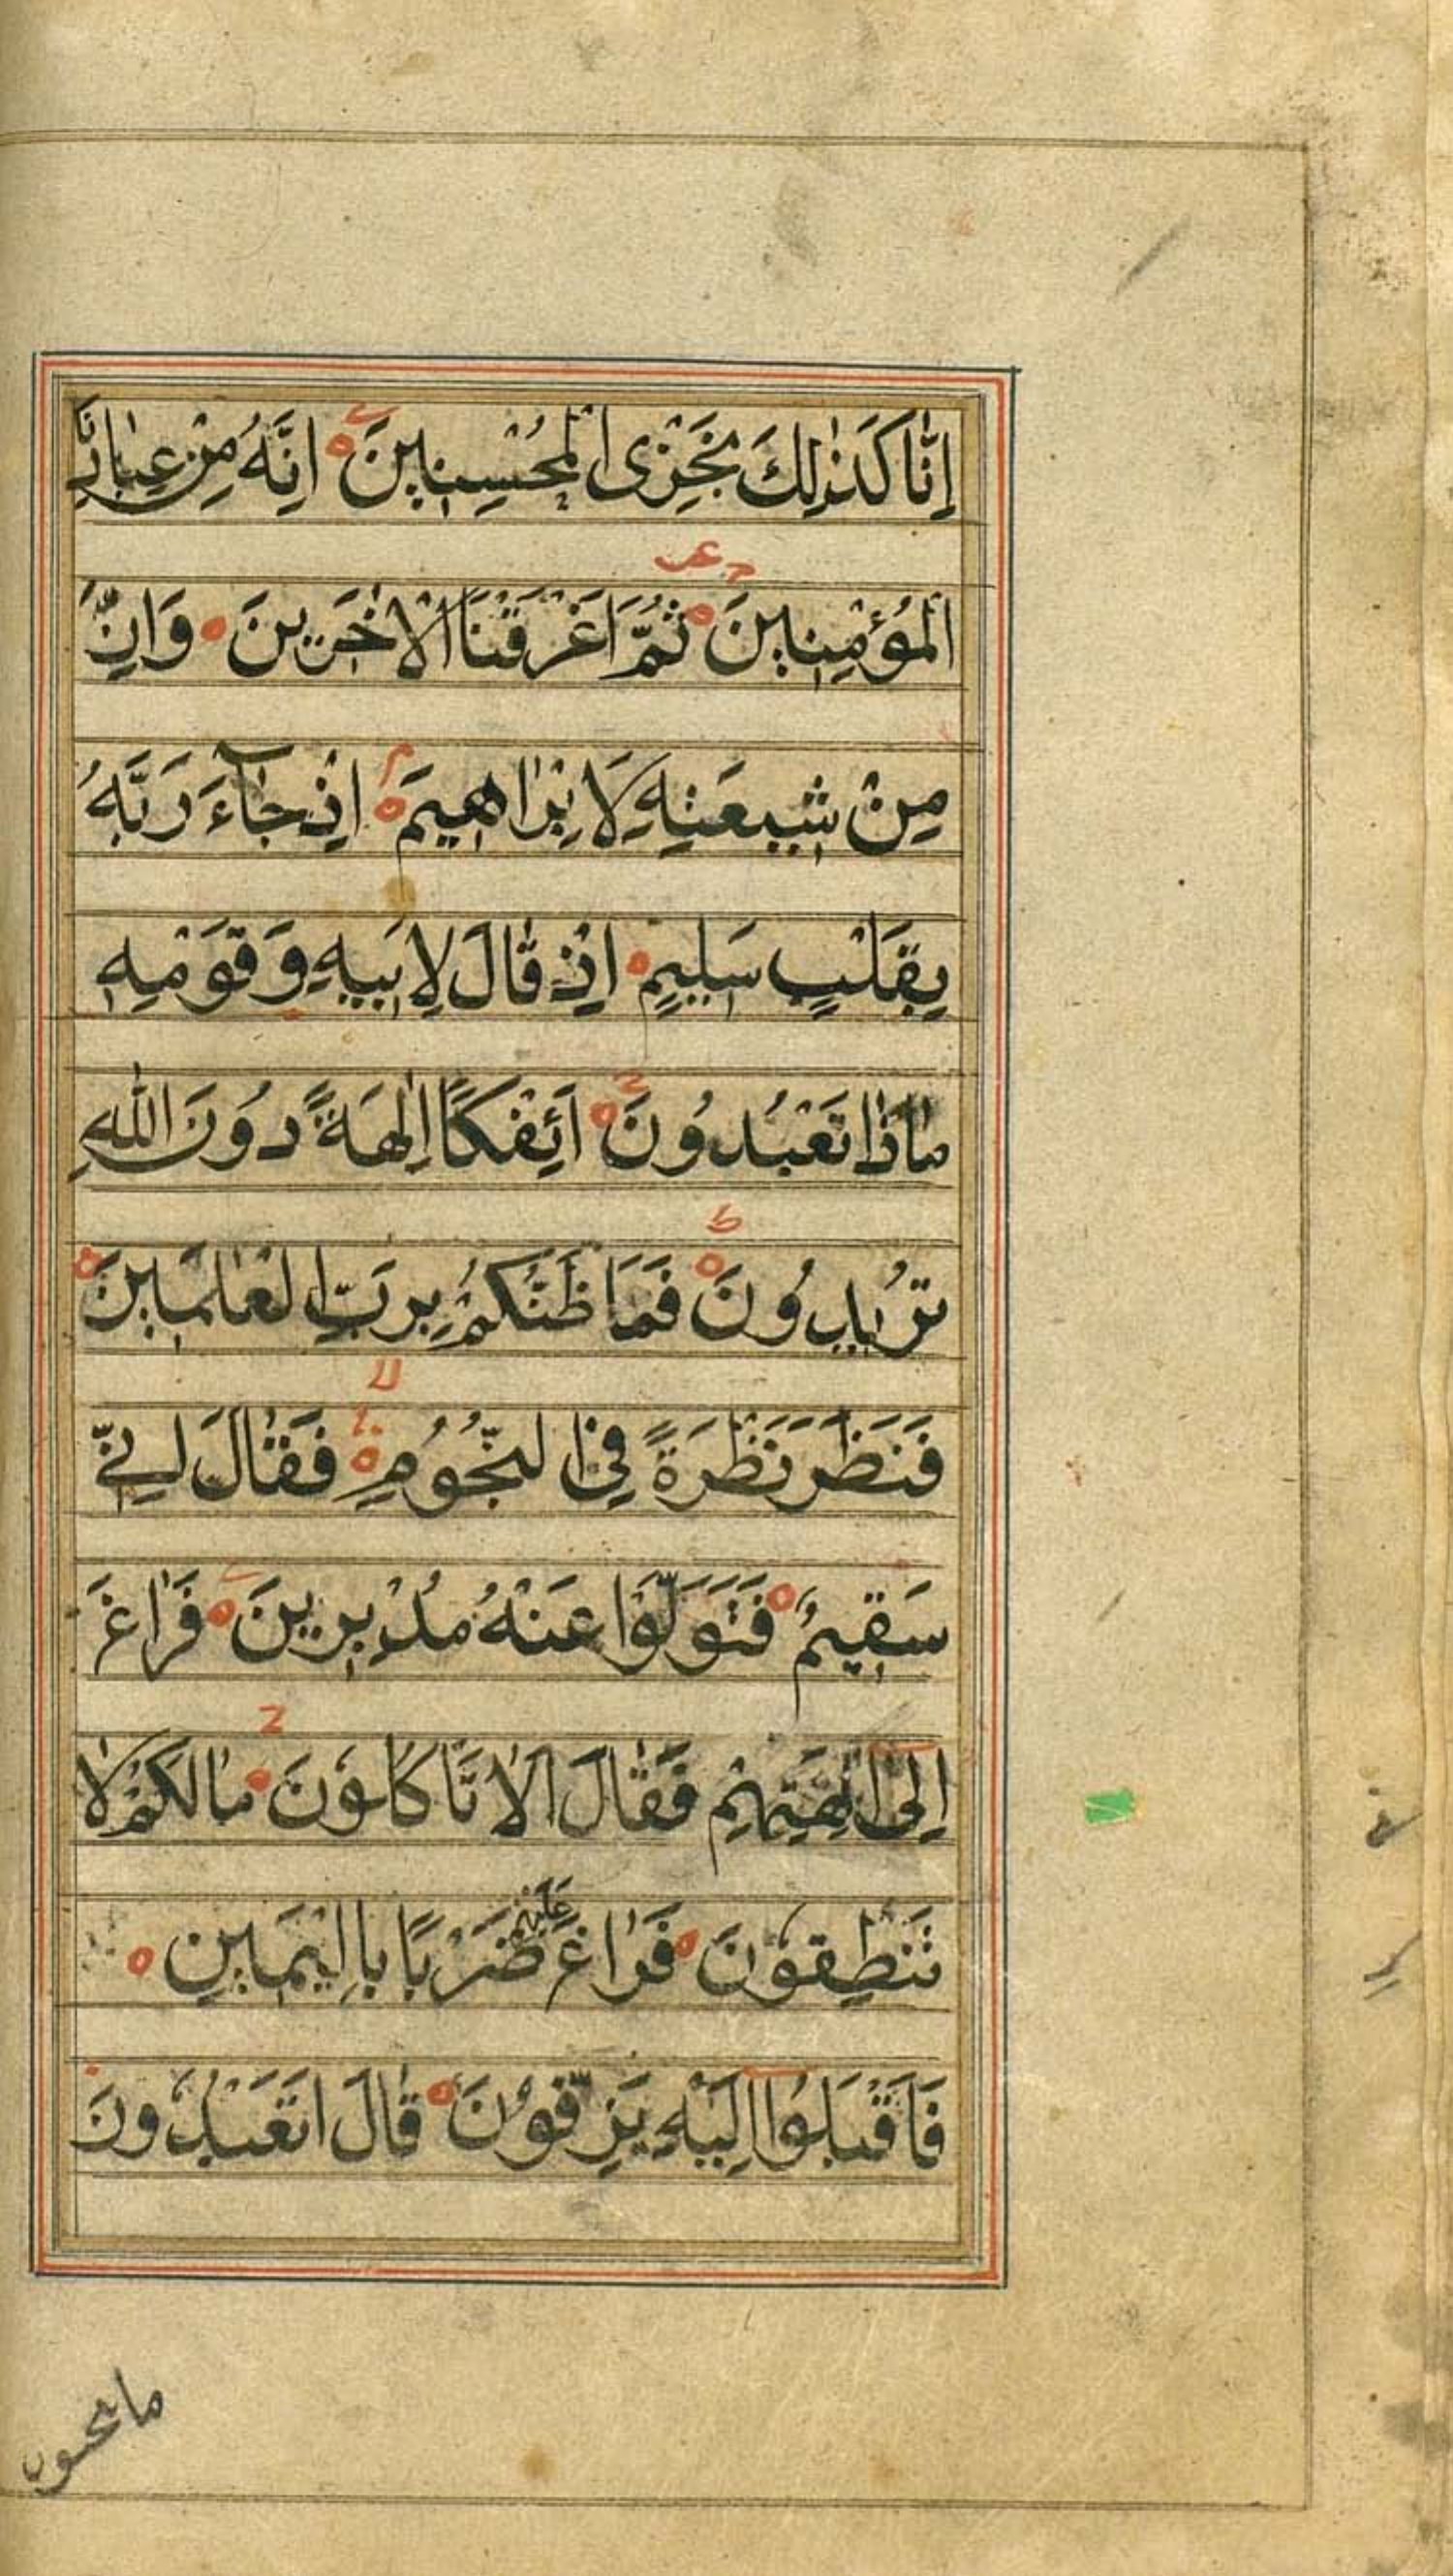 اِنَّا كَذٰلِكَ نَجْزِى الْمُحْسِنِينَ اِنَّهُ مِنْ عِبَادِنَا
الْمُؤْمِنِينَ ثُمَّ اَغْرَقْنَا الْاٰخَرِينَ وَاِنَّ
مِنْ شِيعَتِهٖ لَاِبْرٰاهِيمَ اِذْ جَآءَ رَبَّهُ
بِقَلْبٍ سَلِيمٍ اِذْ قَالَ لِاَبِيهِ وَقَوْمِهٖ
مَاذَا تَعْبُدُونَ اَئِفْكًا اٰلِهَةً دُونَ اللّٰهِ
تُرِيدُونَ فَمَا ظَنُّكُمْ بِرَبِّ الْعٰلَمِينَ
فَنَظَرَ نَظْرَةً فِى النُّجُومِ فَقَالَ اِنِّى
سَقِيمٌ فَتَوَلَّوْا عَنْهُ مُدْبِرِينَ فَرَاغَ
اِلٰى اٰلِهَتِهِمْ فَقَالَ اَلَا تَاْكُلُونَ مَا لَكُمْ لَا
تَنْطِقُونَ فَرَاغَ عَلَيْهِمْ ضَرْبًا بِالْيَمِينِ
فَاَقْبَلُوا اِلَيْهِ يَزِفُّونَ قَالَ اَتَعْبُدُونَ
ما تنحتون